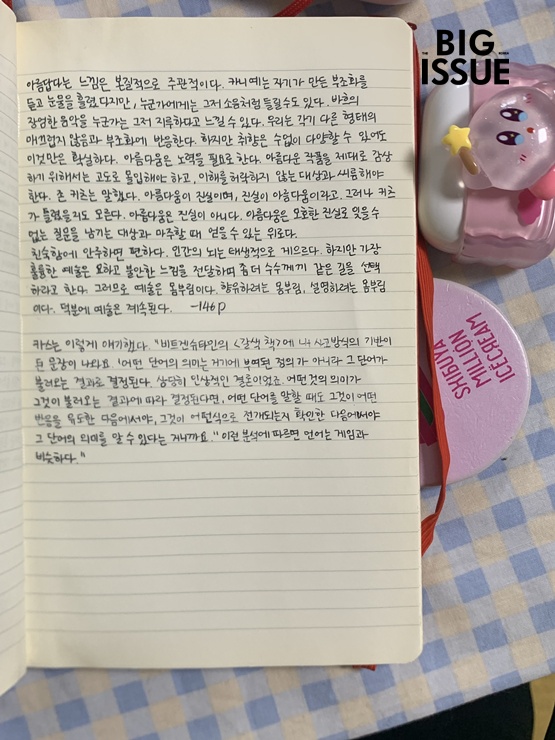 THE BIG KOREA
ISSUE
아름답다는 느낌은 본질적으로 주관적이다. 카니예는 자기가 만든 부조화를
듣고 눈물을 흘렸다지만, 누군가에게는 그저 소음처럼 들릴 수도 있다. 바흐의
장엄한 음악을 누군가는 그저 지루하다고 느낄 수 있다. 우리는 각기 다른 형태의
매끄럽지 않음과 부조화에 반응한다. 하지만 취향은 수없이 다양할 수 있어도
이것만은 확실하다. 아름다움은 노력을 필요로 한다. 아름다운 작품을 제대로 감상
하기 위해서는 고도로 몰입해야 하고, 이해를 허락하지 않는 대상과 씨름해야
한다. 존 키츠는 말했다. 아름다움이 진실이며, 진실이 아름다움이라고. 그러나 키츠
가 틀렸을지도 모른다. 아름다움은 진실이 아니다. 아름다움은 모호한 진실로 잊을 수
없는 질문을 남기는 대상과 마주할 때 얻을 수 있는 위로다.
친숙함에 안주하면 편하다. 인간의 뇌는 태생적으로 게으르다. 하지만 가장
훌륭한 예술은 묘하고 불안한 느낌을 전달하며 좀 더 수수께끼 같은 길을 선택
하라고 한다. 그러므로 예술은 몸부림이다. 향유하려는 몸부림, 설명하려는 몸부림
이다. 덕분에 예술은 계속된다. -146p
카스는 이렇게 얘기했다. "비트겐슈타인의 <갈색 책>에 내 사고방식의 기반이
된 문장이 나와요. '어떤 단어의 의미는 거기에 부여된 정의가 아니라 그 단어가
불러오는 결과로 결정된다. 상당히 인상적인 결론이었죠. 어떤 것의 의미가
그것이 불러오는 결과에 따라 결정된다면, 어떤 단어를 말할 때도 그것이 어떤
반응을 유도한 다음에서야, 그것이 어떤 식으로 전개되는지 확인한 다음에서야
그 단어의 의미를 알 수 있다는 거니까요." 이런 분석에 따르면 언어는 게임과
비슷하다."
SHIBUYA
MILLION
ICECREAM